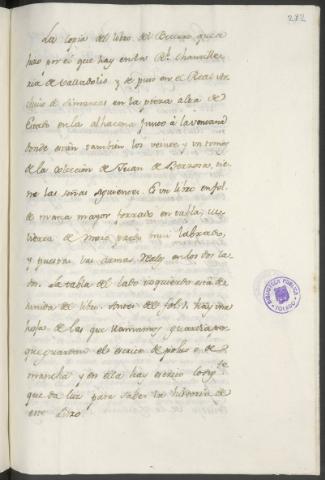 272
La copia del libro del Becerro que se
hizo por el que hay en la Rl. Chancille-
ria de Valladolid y se puso en el Real Ar-
chivo de Simancas en la pieza alta de
Estado en la alhacena junto à la ventana
donde están tambien los veinte y un tomos
de la coleccion de Juan de Berzosa, tie-
ne las señas siguientes. Es un libro en fol.
de marca mayor forrado en tabla, cu-
bierta de
labrado,
y puestas las armas Reales en los dos la-
dos. La tabla del lado izquierdo está
del libro. Antes del fol. 1. hay una
hoja de las que llamamos guardia, por
que guardan el escrito de polvo ò de
mancha y en ella hay escrito lo sigte.
que da luz para saber la historia de
este libro
BIBLIOTECA PUBLICA
TOLEDO